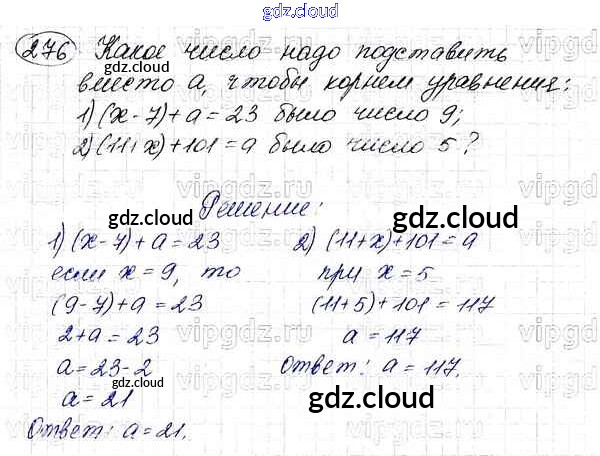 gdz.cloud
276 Какое число надо подставить
gdz.cloud
вместо а, чтобы корнем уравнения:
1) (x-7)+a=23 было число 9;
2) (11+x)+101=a было число 5?
vipgdz.ru
Решение:
gdz.cloud
gdz.cloud
1) (x-7)+a=23
если x=9, то
(9-7)+a=23
2+a=23
a=23-2
gdz.cloud
a=21
Ответ: a=21.
2) (11+x)+101=a
при x=5
(11+5)+101=117
a=117
Ответ: a=117.
gdz.cloud